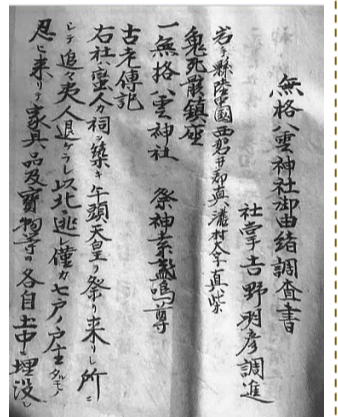 無格八雲神社御由緒調査書
社掌吉野明彦調進
岩手縣陸中國西磐井郡真瀧村大字真柴
鬼死骸鎮座
一無格八雲神社 祭神素盞嗚尊
古老傳記
右社ハ蛮人カ祠ヲ築キ牛頭天皇ヲ祭リ来リシ所ニ
シテ追々夷人退ケラレ以北ニ逃レ僅カ七戸ノ戸主タルモノ
忍ヒ来リテ家具品及寶物等ヲ各自土中ニ埋没シ